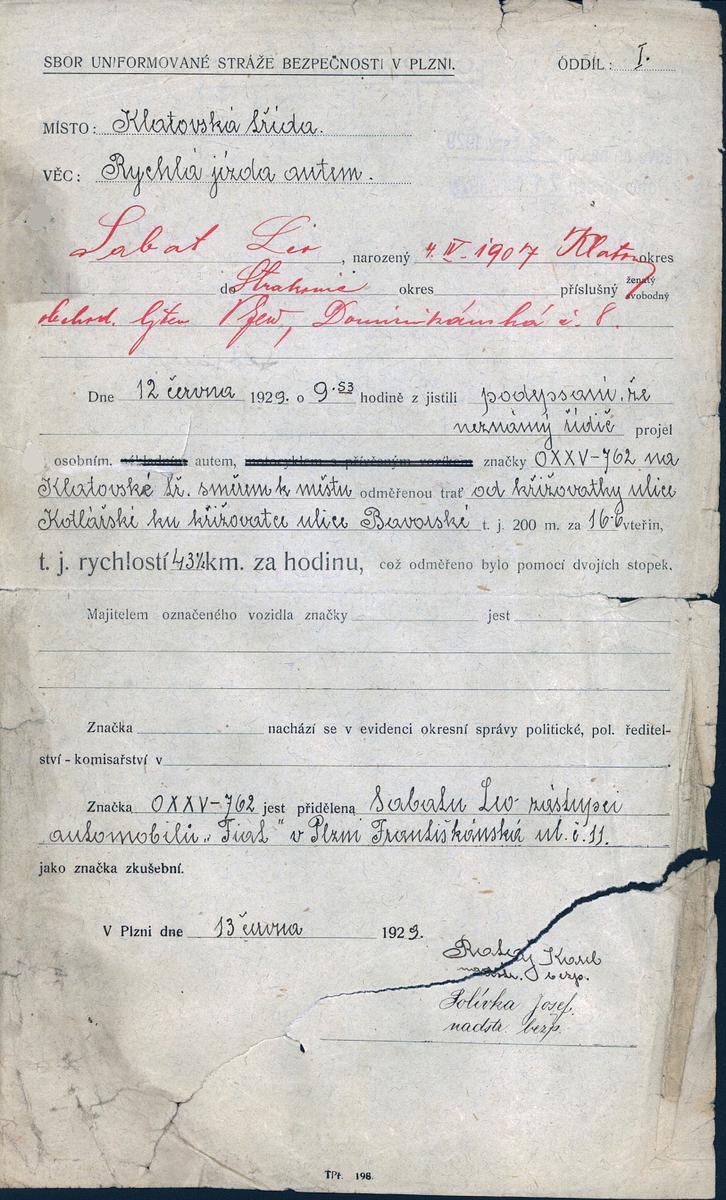 SBOR UNIFORMOVANÉ STRÁŽE BEZPEČNOSTI V PLZNI. ODDÍL: I.
MÍSTO: Klatovská třída.
VĚC: Rychlá jízda autem.
Sabat Leo, narozený 4. IV. 1907 Klatovy okres
do Strakonic okres příslušný ženatý svobodný
obchod. Dominikánská č. 8.
Dne 12 června 1929. o 9.53 hodině zjistili podepsaní, že
neznámý řidič projel
osobním. nákladním autem, motocyklem s přívěsným vozíkem značky OXXV-762 na
Klatovské tř. směrem k městu odměřenou trať od křižovatky ulice
Kotlářské ku křižovatce ulice Bavorské t. j. 200 m. za 16·6 vteřin,
t. j. rychlostí 43½ km. za hodinu, což odměřeno bylo pomocí dvojích stopek.
Majitelem označeného vozidla značky jest
Značka nachází se v evidenci okresní správy politické, pol. ředitel-
ství - komisařství v
Značka OXXV-762 jest přidělena Sabatu Leo zástupci
automobilů „Fiat" v Plzni Františkánská ul. č. 11.
jako značka zkušební.
V Plzni dne 13 června 1929.
Karel
nadstr. bezp.
Polívka Josef.
nadstr. bezp.
TPt. 198.